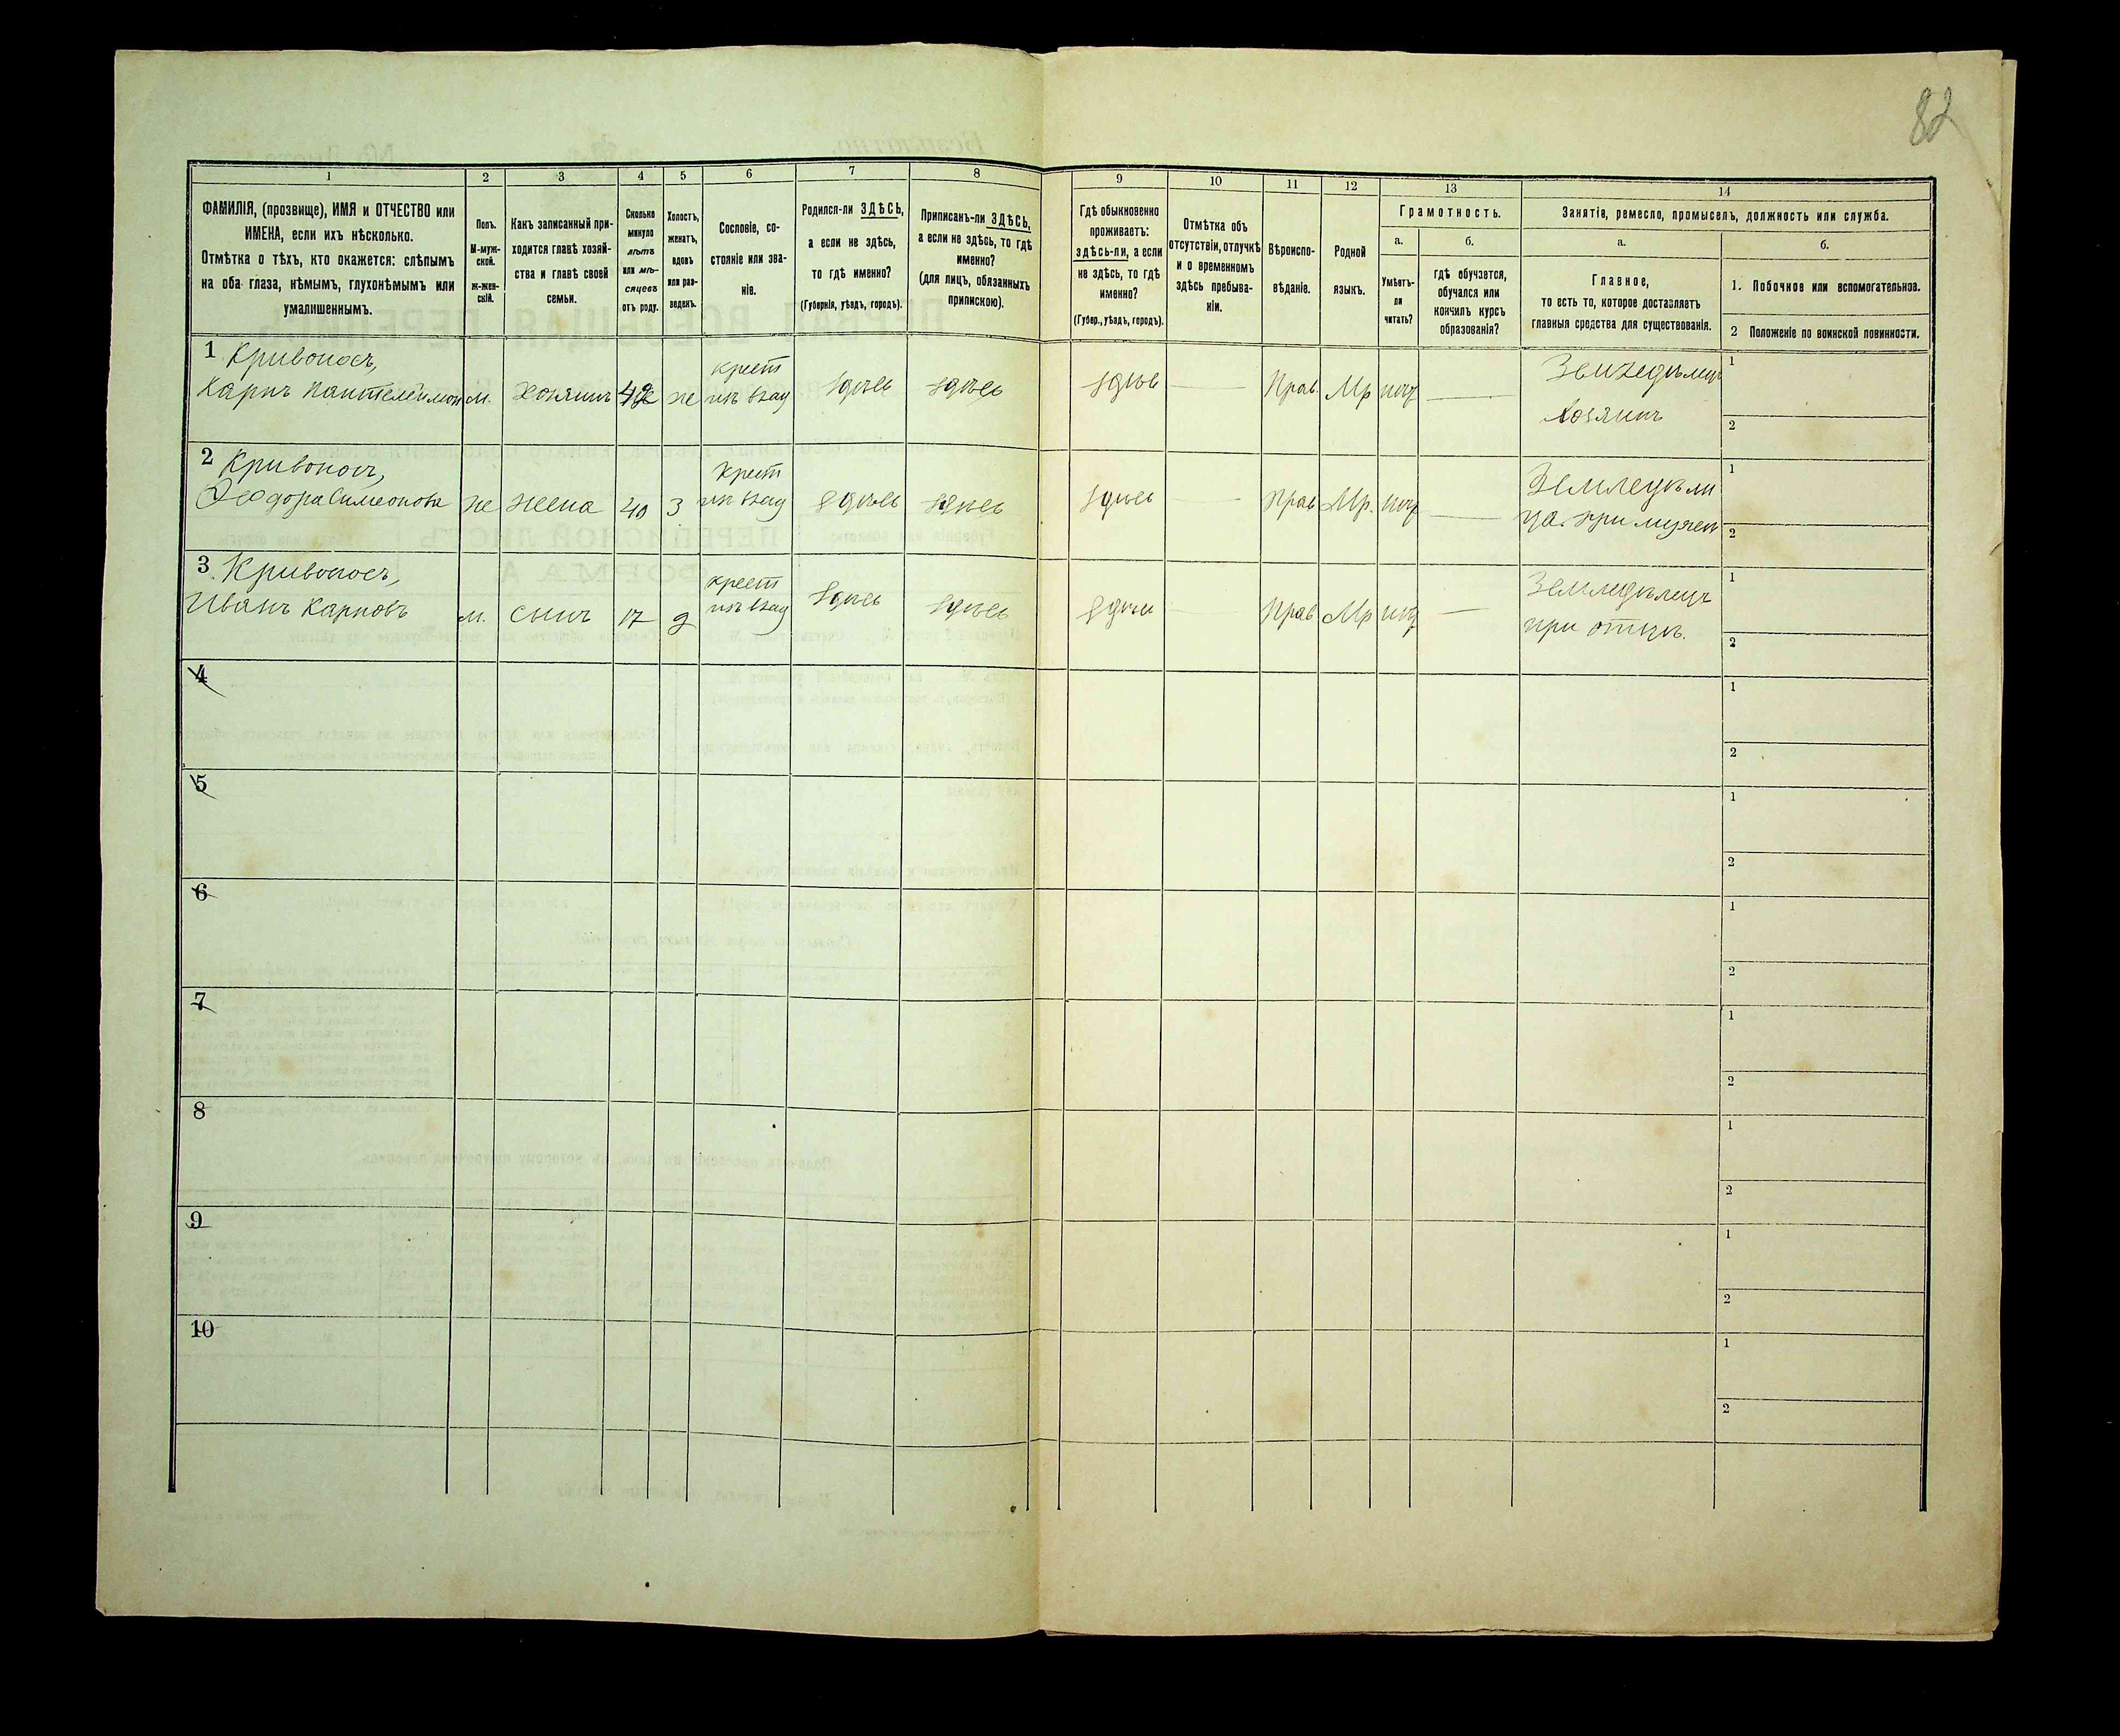 82
1 2 3 4 5 6 7 8 9 10 11 12 13 14
ФАМИЛІЯ, (прозвище), ИМЯ и ОТЧЕСТВО или
ИМЕНА, если ихъ нѣсколько.
Отмѣтка о тѣхъ, кто окажется: слѣпымъ
на оба глаза, нѣмымъ, глухонѣмымъ или
умалишеннымъ.
Полъ.
М-муж-
ской.
ж-жен-
скій.
Какъ записанный при-
ходится главѣ хозяй-
ства и главѣ своей
семьи.
Сколько
минуло
лѣтъ
или мѣ-
сяцевъ
отъ роду.
Холостъ,
женатъ,
вдовъ
или раз-
веденъ.
Сословіе, со-
стояніе или зва-
ніе.
Родился-ли ЗДѢСЬ,
а если не здѣсь,
то гдѣ именно?
(Губернія, уѣздъ, городъ).
Приписанъ-ли ЗДѢСЬ,
а если не здѣсь, то гдѣ
именно?
(для лицъ, обязанныхъ
припискою).
Гдѣ обыкновенно
проживаетъ:
здѣсь-ли, а если
не здѣсь, то гдѣ
именно?
(Губер., уѣздъ, городъ).
Отмѣтка объ
отсутствіи, отлучкѣ
и о временномъ
здѣсь пребыва-
ніи.
Вѣроиспо-
вѣданіе.
Родной
языкъ.
Грамотность.
а.
Умѣетъ-
ли
читать?
б.
гдѣ обучается,
обучался или
кончилъ курсъ
образованія?
Занятіе, ремесло, промыселъ, должность или служба.
а.
Главное,
то есть то, которое доставляетъ
главныя средства для существованія.
б.
1. Побочное или вспомогательное.
2 Положеніе по воинской повинности.
1 Кривоносъ, крест Земледѣлецъ 1
Карпъ Пантелеймон м. хозяинъ ж здѣсь здѣсь здѣсь — Прав. Мр —
хозяинъ 2
2 Кривоносъ, Крест Земледѣли 1
Ѳеодора Симеонова ж жена 40 з здѣсь здѣсь здѣсь — Прав Мр. —
ца при мужѣ 2
3 Кривоносъ, крест Земледѣлецъ 1
Иванъ Карповъ м. сынъ 17 здѣсь здѣсь здѣсь — Прав Мр —
при отцѣ. 2
4 1
2
5 1
2
6 1
2
7 1
2
8 1
2
9 1
2
10 1
2